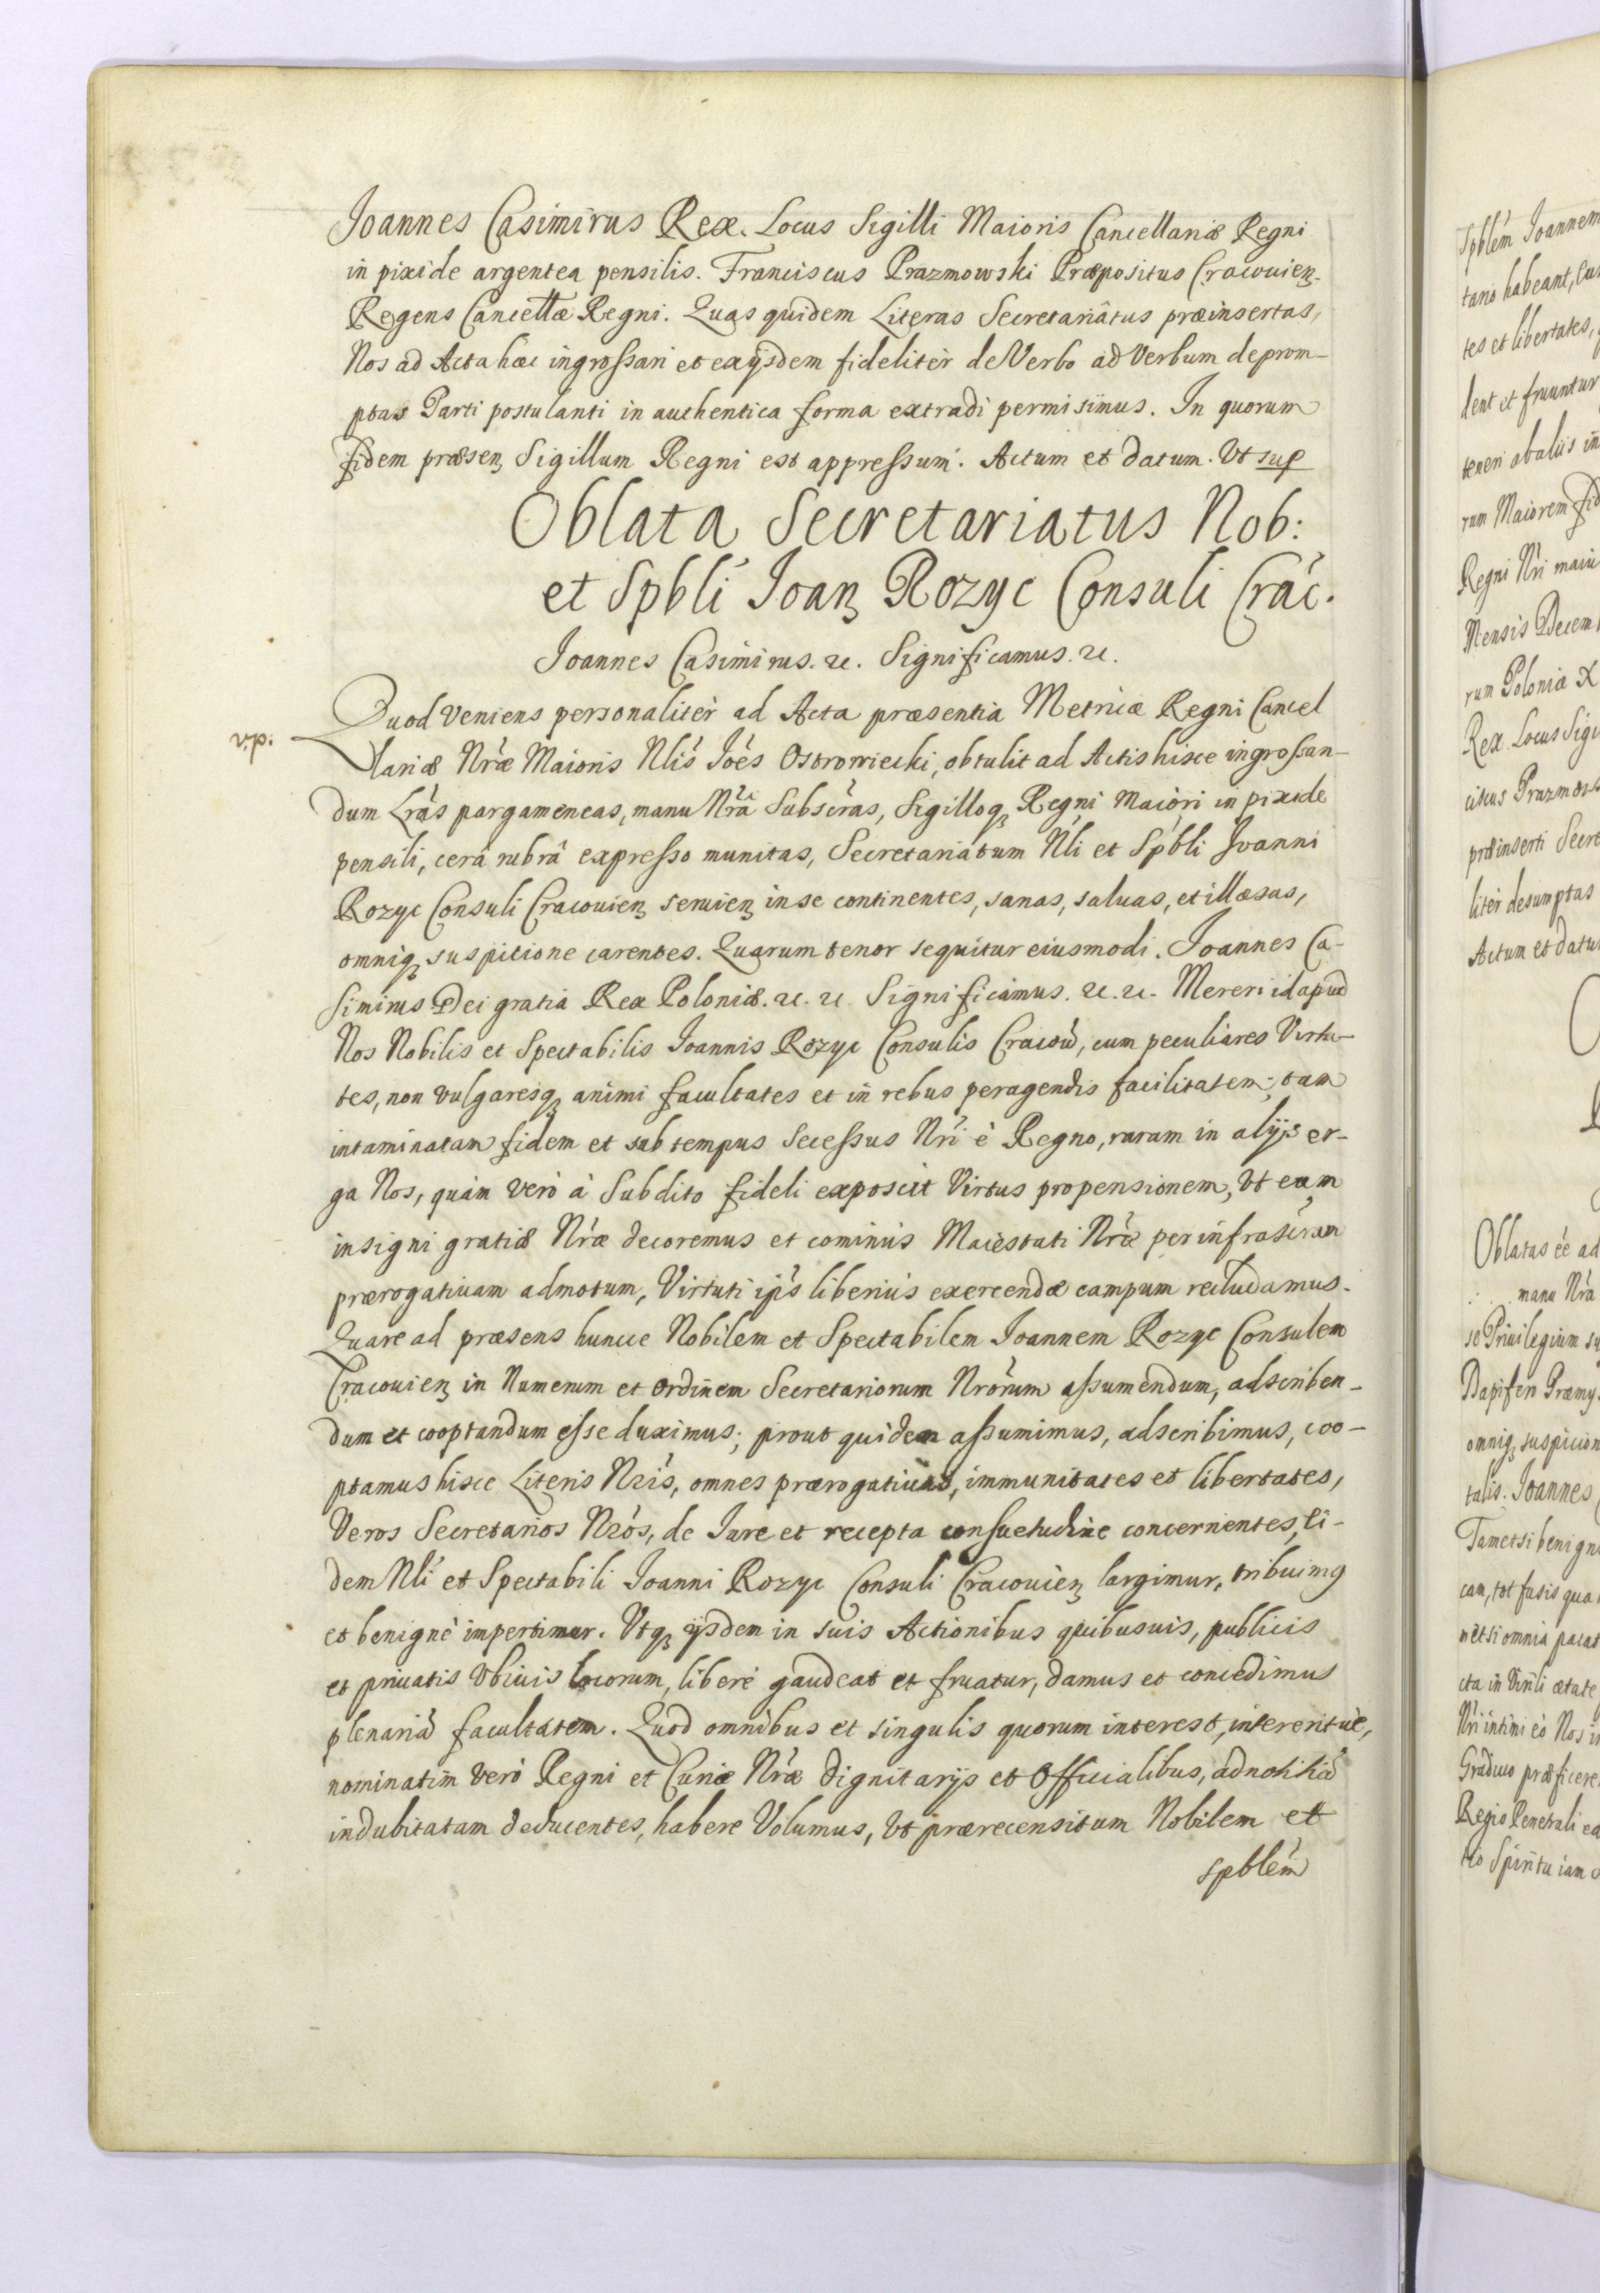 Joannes Casimirus Rex. Locus Sigilli Maioris Cancellariæ Regni
in pixide argentea pensilis. Franciscus Prazmowski Præpositus Cracouien̄
Regens Cancellæ Regni. Quas quidem Literas Secretariâtus præinsertas,
Nos ad Acta hæc ingrossari et exijsdem fidelitèr de Verbo ad Verbum deprom-
ptas Parti postulanti in authentica forma extradi permisimus. In quorum
fidem præsen Sigillum Regni est appressum. Actum et datum. Vt sup
Oblata Secretariatus Nob:
et Spbli Joan Rozyc Consuli Crac.
Joannes Casimirus. &c. Significamus. &c.
Quod Veniens personalitèr ad Acta præsentia Metricæ Regni Cancel
v.p.
lariæ Nræ Maioris Nlis Joes Ostrowiecki, obtulit ad Actis hisce ingrossan-
dum Lrás pargameneas, manu Nrá Subscras, Sigilloq Regni Maiori in pixide
pensili, cerâ rubrâ expresso munitas, Secretariatum Nli et Spbli Joanni
Rozyc Consuli Cracouien seruien in se continentes, sanas, saluas, et illæsas,
omniq suspitione carentes. Quarum tenor sequitur eiusmodi. Joannes Ca-
simirus Dei gratia Rex Poloniæ. &c. &c Significamus. &c. &c. Mereri id apud
Nos Nobilis et Spectabilis Joannis Rozyc Consulis Cracou, cum peculiares Virtu-
tes, non vulgaresq animi facultates et in rebus peragendis facilitatem; tam
intaminatam fidem et sub tempus Secessus Nri è Regno, raram in alijs er-
ga Nos, quàm verò à Subdito fideli exposcit Virtus propensionem, Vt eum
insigni gratiæ Nræ decoremus et cominus Maiestati Nræ per infrascram
prærogatiuam admotum, Virtuti ips liberius exercendæ campum recludamus.
Quare ad præsens huncce Nobilem et Spectabilem Joannem Rozyc Consulem
Cracouien in Numerum et Ordinem Secretariorum Nrorum assumendum, adscriben-
dum et cooptandum esse duximus; prout quidem assumimus, adscribimus, coo-
ptamus hisce Literis Nris, omnes prærogatiuas, immunitates et libertates,
Veros Secretarios Nros, de Iure et recepta consuetudine concernentes, ei-
dem Nli et Spectabili Joanni Rozyc Consuli Cracouien largimur, tribuimq
et benignè impertimur. Vtq ijsdem in suis Actionibus quibusuis, publicis
et priuatis Vbiuis locorum, liberè gaudeat et fruatur, damus et concedimus
plenariā facultatem. Quod omnibus et singulis quorum interest, intererituè,
nominatim verò Regni et Curiæ Nræ Dignitarijs et Officialibus, ad notitiā
indubitatam deducentes, habere Volumus, Vt prærecensitum Nobilem et
spblem
Spblem Joannem
tario habeant,
tes et libertates,
dent et fruantur
teneri ab aliis
rum Maiorem
Regni Nri
Mensis Decem
rum Poloniæ
Rex Locus Sigi
ciscus Prazmow
præinserti Secre
litèr desumptas
Actum et datu
Oblatas ee ad
manu Nrá
se Priuilegium
Dapiferi Præmy
omniq suspicion
talis. Joannes
Tametsi benign
cam, tot fusis qua
cta in Virili ætate
Nri intimi eò Nos
præficere
Regio
Spiritu iam